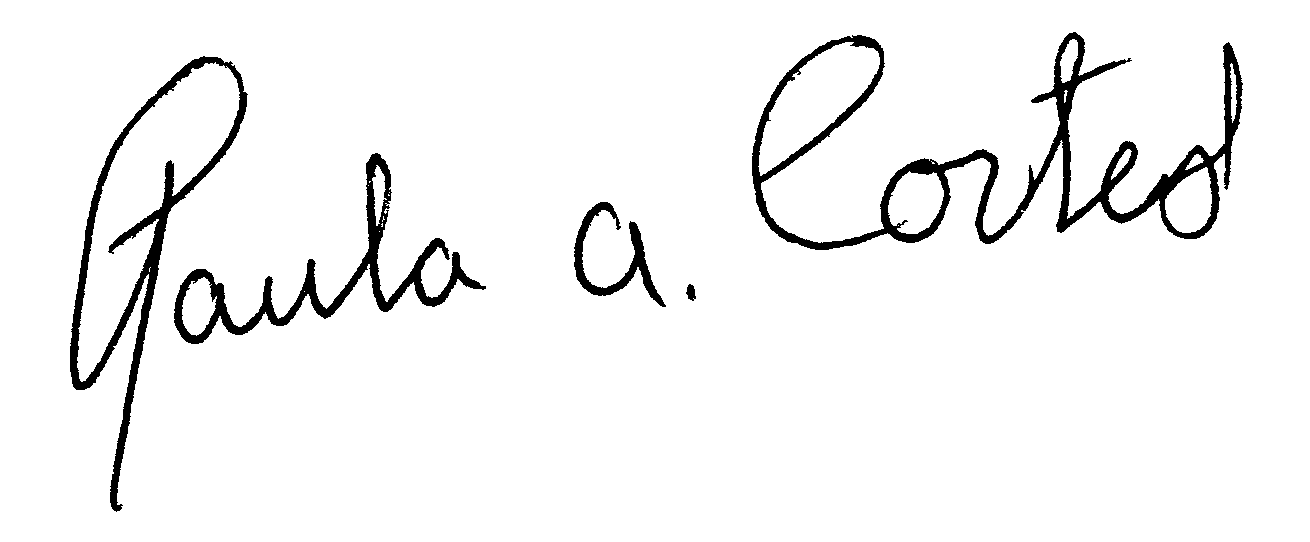 Paula a. Cortes